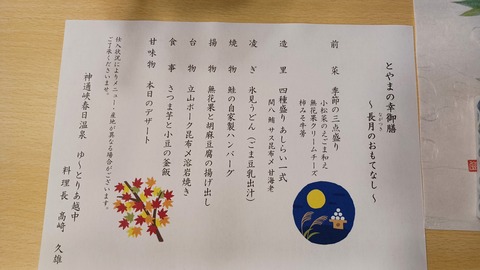 とやまの幸御膳
ながつき
〜長月のおもてなし〜
前菜 季節の三点盛り
小松菜のえごま和え
無花果クリームチーズ
柿みそ牛蒡
造里 四種盛り あしらい一式
間八 鮪 サス昆布〆 甘海老
凌ぎ 氷見うどん（ごま豆乳出汁）
焼物 鮭の自家製ハンバーグ
揚物 無花果と胡麻豆腐の揚げ出し
台物 立山ポーク昆布〆溶岩焼き
食事 さつま芋と小豆の釜飯
甘味物 本日のデザート
仕入状況によりメニュー・産地が異なる場合がございます。
ご了承くださいませ。
神通峡春日温泉 ゆ〜とりあ越中
料理長 高崎 久雄